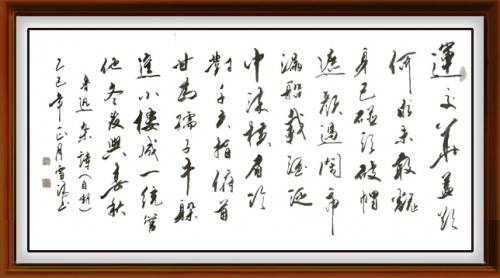 運交華蓋欲
何求未敢翻
身已碰頭破帽
遮顏過鬧市
漏船載酒泛
中流橫眉冷
對千夫指俯首
甘為孺子牛躲
進小樓成一統管
他冬夏與春秋
魯迅杂詩(自嘲)
乙巳年正月